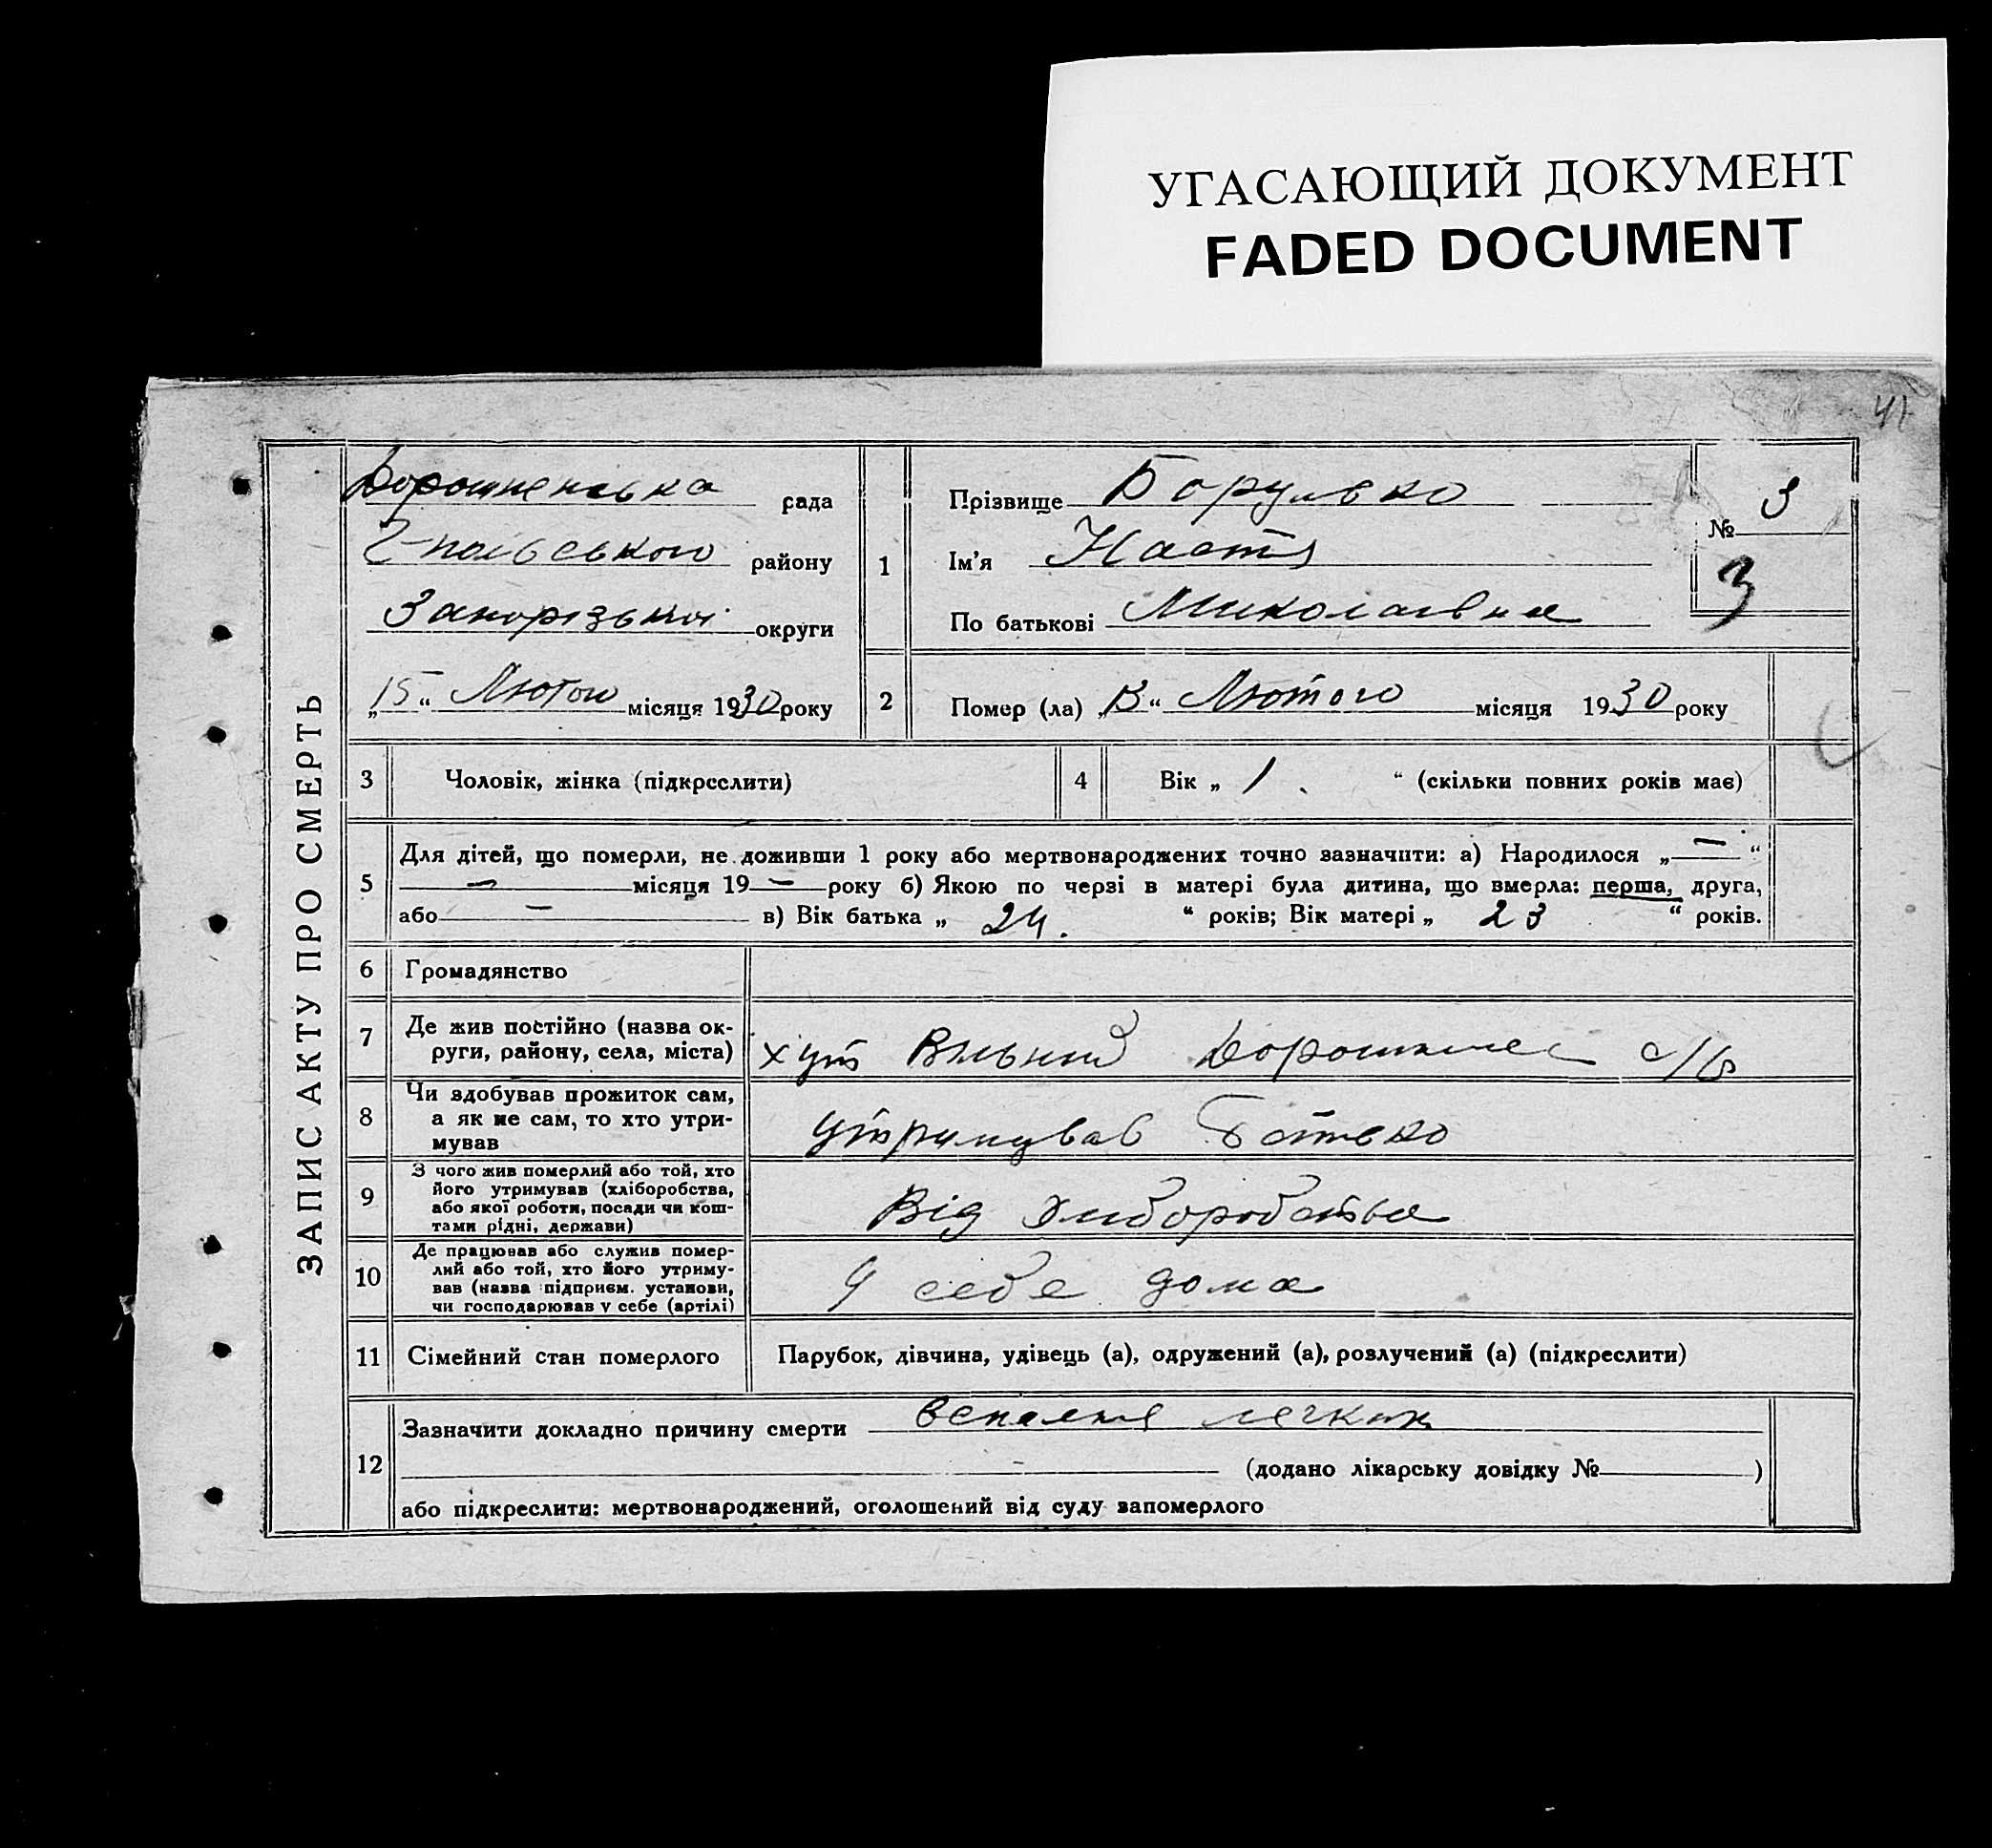 УГАСАЮЩИЙ ДОКУМЕНТ
FADED DOCUMENT
41
ЗАПИС АКТУ ПРО СМЕРТЬ
рада
району
Запорізької округи
„15“ Лютого місяця 1930 року
1
Прізвище Борулько
Ім'я Настя
По батькові Миколаївна
№ 3
3
2
Помер (ла) „13“ Лютого місяця 1930 року
3
Чоловік, жінка (підкреслити)
4
Вік „ 1. “ (скільки повних років має)
5
Для дітей, що померли, не доживши 1 року або мертвонароджених точно зазначити: а) Народилося „—“
— місяця 19 — року б) Якою по черзі в матері була дитина, що вмерла: перша, друга,
або — в) Вік батька „ 24. “ років; Вік матері „ 23 “ років.
6
Громадянство
7
Де жив постійно (назва ок-
руги, району, села, міста)
хут Вільний с/р
8
Чи здобував прожиток сам,
а як не сам, то хто утри-
мував
Утримував Батько
9
З чого жив померлий або той, хто
його утримував (хліборобства,
або якої роботи, посади чи кош-
тами рідні, держави)
Від Хліборобства
10
Де працював або служив помер-
лий або той, хто його утриму-
вав (назва підприєм. установи,
чи господарював у себе (артілі)
У себе дома
11
Сімейний стан померлого
Парубок, дівчина, удівець (а), одружений (а), розлучений (а) (підкреслити)
12
Зазначити докладно причину смерти легких
(додано лікарську довідку № )
або підкреслити: мертвонароджений, оголошений від суду запомерлого